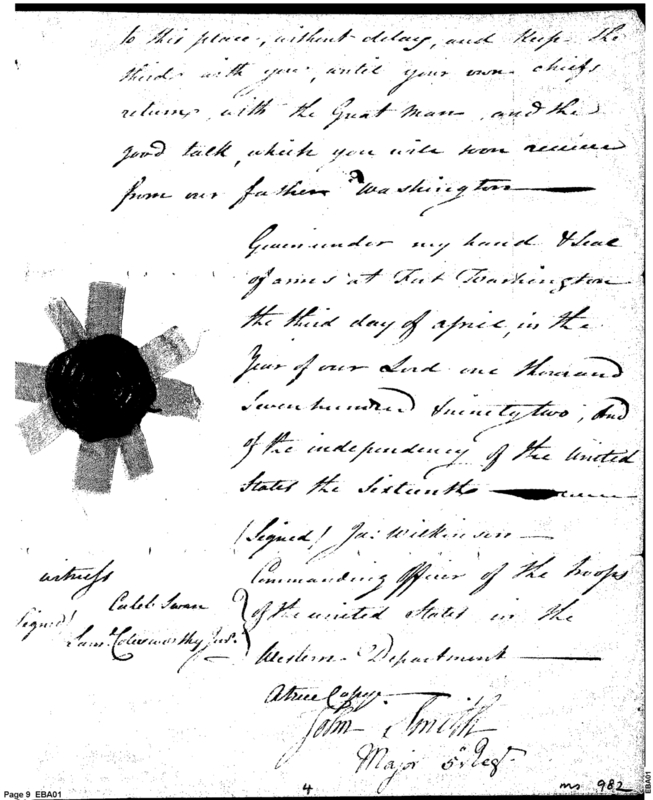 to this place, without delay, and keep the
third with you, until your own chiefs
return, with the Great Man, and the
good talk, which you will soon receive
from our father Washington
Given under my hand & Seal
of arms at Fort Washington
the third day of april, in the
Year of our Lord one thousand
Seven hundred & ninety two, And
of the independency of the United
States the Sixteenth
(Signed) Ja: Wilkinson
Commanding Officer of the troops
of the united States in the
Western Department
witness
Signed)
Caleb Swan
Saml
A true Copy
John Smith
Major Regt
4
ms 982
Page 9 EBA01
EBA01